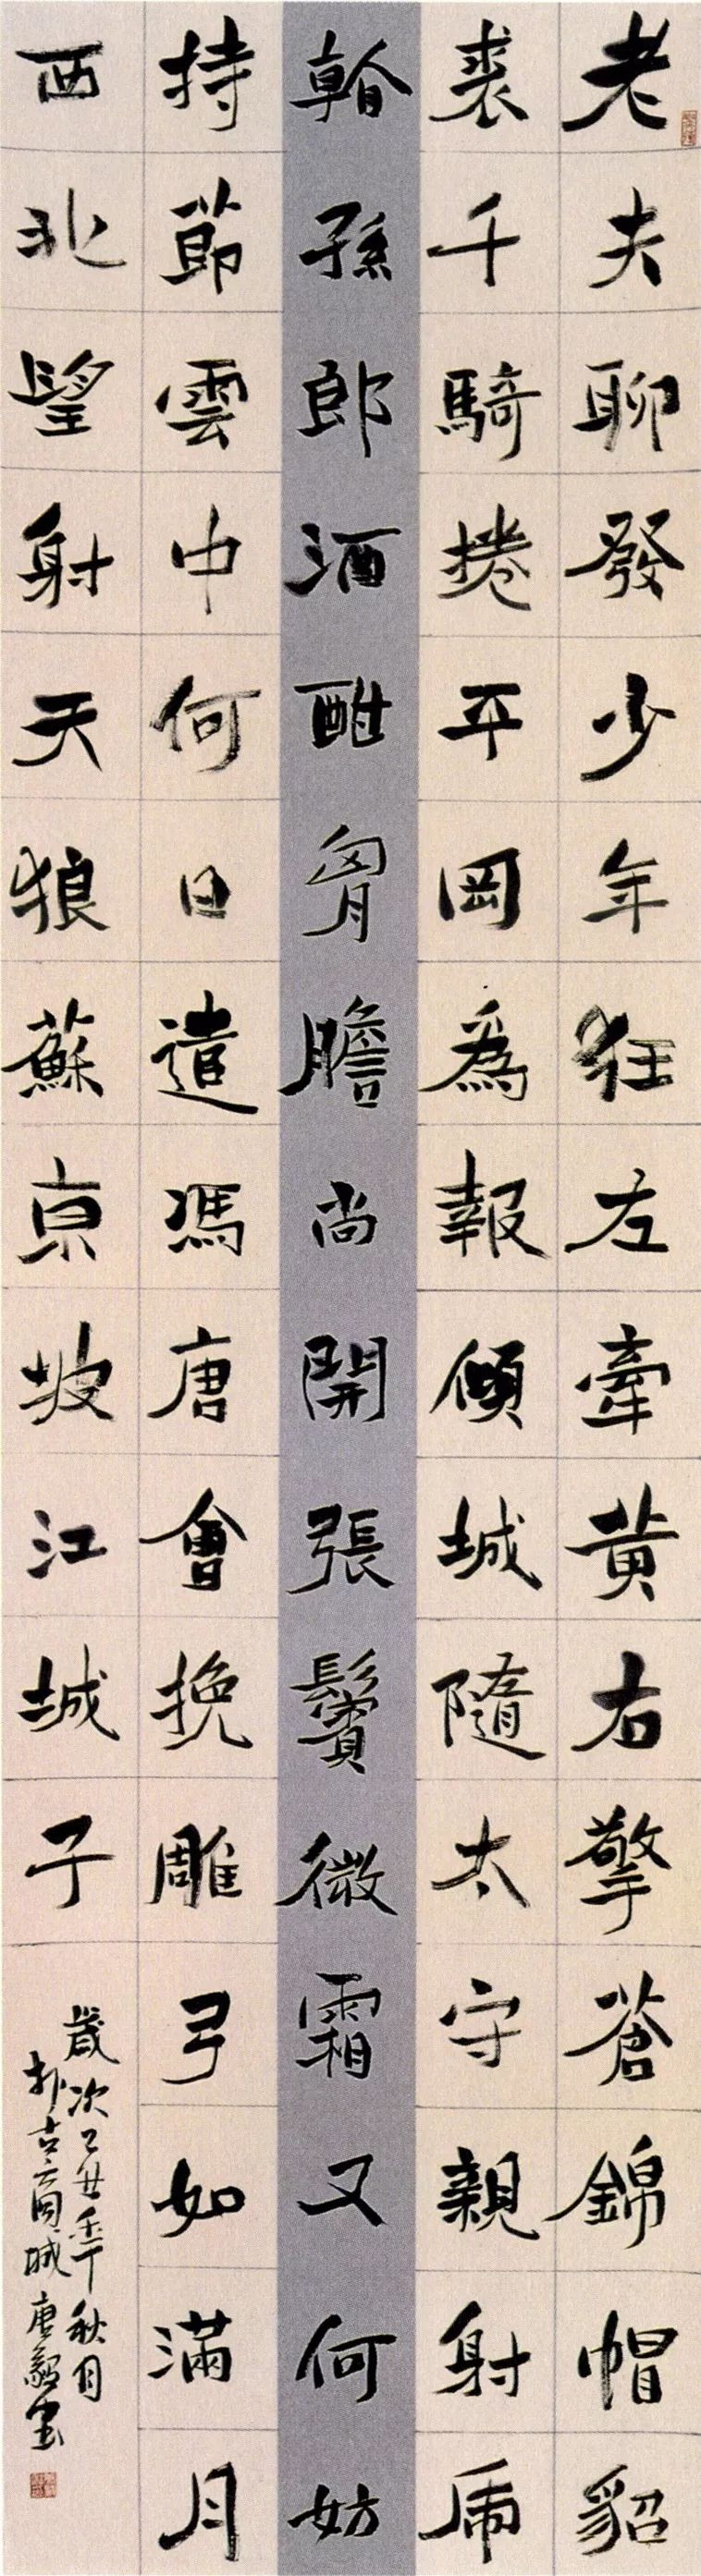 老夫聊發少年狂左牽黃右擎蒼錦帽貂
裘千騎捲平岡為報傾城隨太守親射虎
看孫郎酒酣胷膽尚開張鬢微霜又何妨
持節雲中何日遣馮唐會挽雕弓如滿月
西北望射天狼蘇東坡江城子
歲次己丑年秋月
於古商城唐毅書